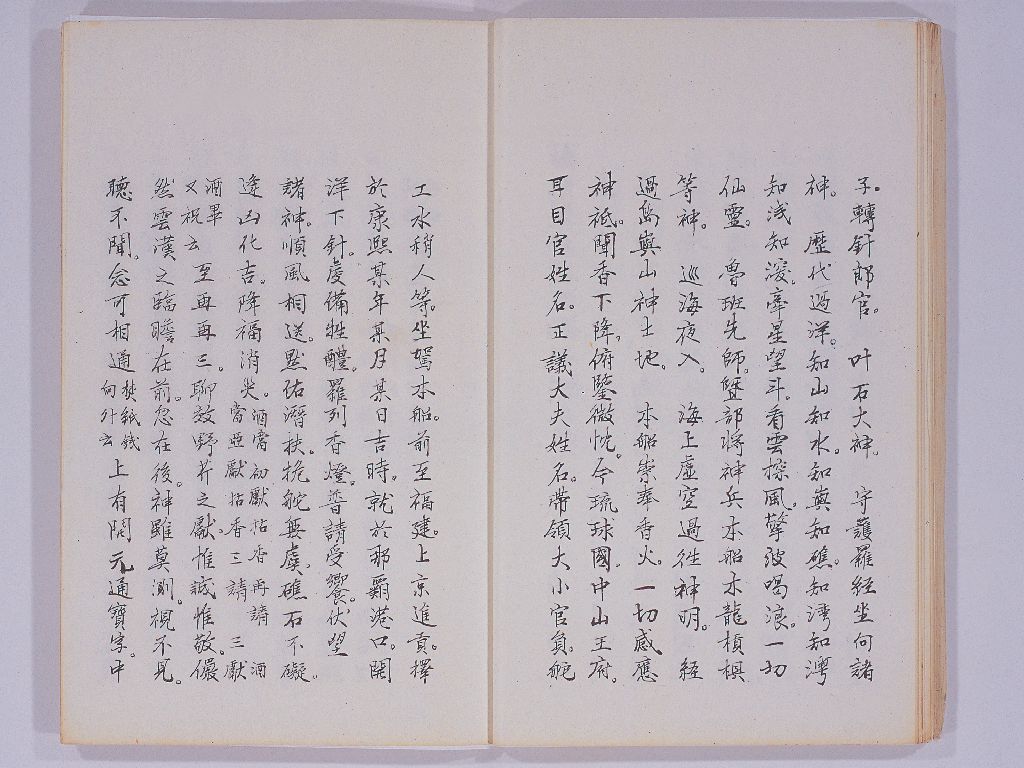 子。轉針郎官。 叶石大神。 守護羅經坐向諸
神。 歷代過洋。知山知水。知輿知礁。知灣知灣
知浅知深。牽星望斗。看雲探風。擎波喝浪。一切
仙靈。 魯班先師。暨部將神兵本船木龍楨棋
等神。 巡海夜入。 海上虛空過徃神明。 経
過島嶼山神土地。 本船崇奉香火。一切感應
神祗。聞香下降。俯鑒微忱。今琉球國。中山王府。
耳目官姓名。正議大夫姓名。帶領大小官負。舵
工水稍人等。坐駕本船。前至福建。上京進貢。擇
於康熙某年某月某日吉時。就於那霸港口。開
洋下針。虔備牲醴。羅列香燈。普請受饗。伏望
諸神。順風相送。默佑潛扶。挽舵無虞。礁石不礙。
逢凶化吉。降福消災。酒當初獻拈香再請 酒
當亞獻拈香三請 三獻
酒畢
又祝云 至再再三。聊效野芹之獻。惟誠惟敬。儼
然雲漢之臨瞻在前。忽在後。神雖莫測。視不見。
聴不聞。念可相通焚紙錢
向外云 上有開元通寶字。中